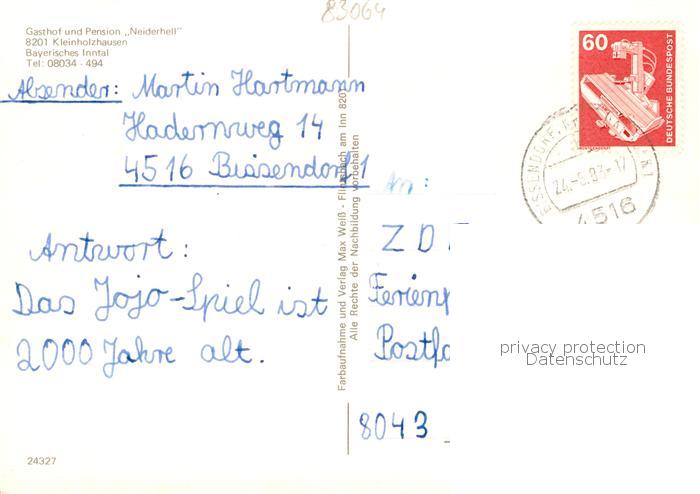 83064
Gasthof und Pension „Neiderhell"
8201 Kleinholzhausen
Bayerisches Inntal
Tel: 08034 - 494
Absender: Martin Hartmann
Hadernweg 14
4516 Bissendorf 1
Antwort:
Das Jojo-Spiel ist
2000 Jahre alt.
24327
Farbaufnahme und Verlag Max Weiß - Flintsbach am Inn 8201
Alle Rechte der Nachbildung vorbehalten
An:
ZD
Ferienp
Postfa
8043
60
DEUTSCHE BUNDESPOST
4516
privacy protection
Datenschutz